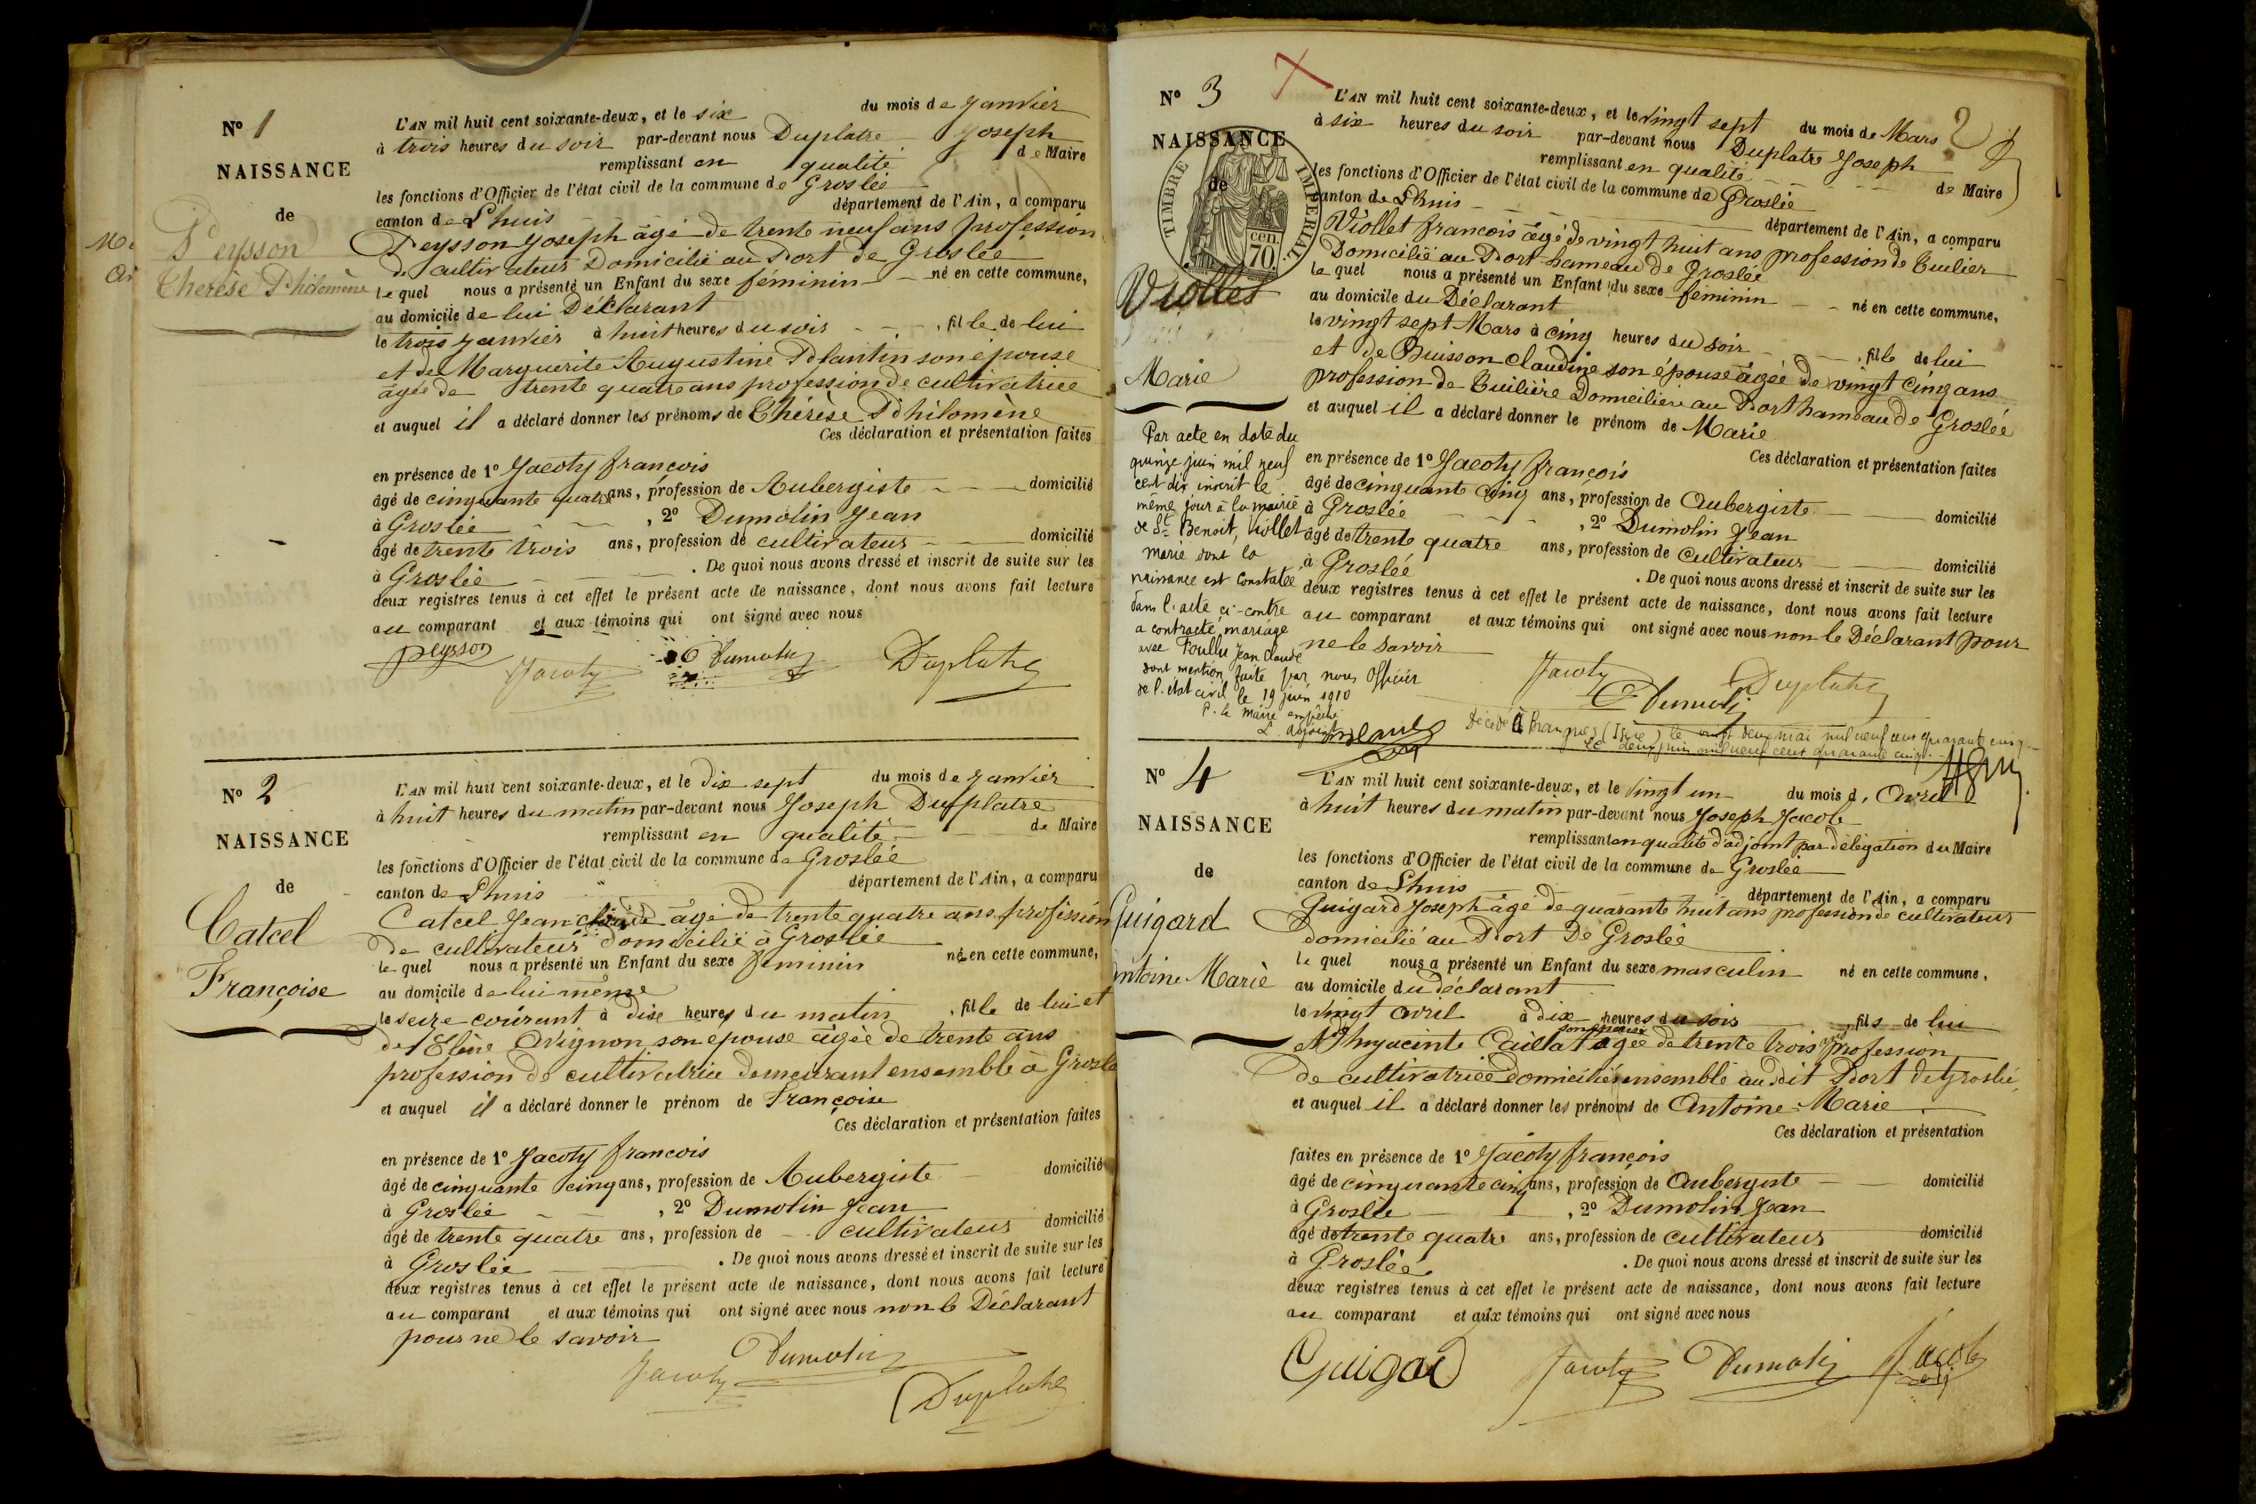 N° 1
NAISSANCE
de
Peysson
Thérèse Philomène
L'AN mil huit cent soixante-deux, et le six du mois de Janvier
à trois heures du soir par-devant nous Duplatre Joseph
remplissant en qualité de Maire
les fonctions d'Officier de l'état civil de la commune de Groslée
canton de Lhuis département de l'Ain, a comparu
Peysson Joseph âgé de trente neuf ans profession
de cultivateur Domicilié au Port de Groslée
lequel nous a présenté un Enfant du sexe féminin né en cette commune,
au domicile de lui Déclarant
le trois Janvier à huit heures du soir, fille de lui
et de Marguerite Augustine Plantin son épouse
âgée de trente quatre ans profession de cultivatrice
et auquel il a déclaré donner les prénoms de Thérèse Philomène
Ces déclaration et présentation faites
en présence de 1° Jacoty françois
âgé de cinquante quatre ans, profession de Aubergiste domicilié
à Groslée, 2° Dumolin Jean
âgé de trente trois ans, profession de cultivateur domicilié
à Groslée. De quoi nous avons dressé et inscrit de suite sur les
deux registres tenus à cet effet le présent acte de naissance, dont nous avons fait lecture
au comparant et aux témoins qui ont signé avec nous
peysson Jacoty Dumolin Duplatre
N° 2
NAISSANCE
de
Catcel
Françoise
L'AN mil huit cent soixante-deux, et le Dix sept du mois de Janvier
à huit heures du matin par-devant nous Joseph Duplatre
remplissant en qualité de Maire
les fonctions d'Officier de l'état civil de la commune de Groslée
canton de Lhuis département de l'Ain, a comparu
Catcel Jean claude âgé de trente quatre ans profession
de cultivateur domicilié à Groslée
lequel nous a présenté un Enfant du sexe féminin né en cette commune,
au domicile de lui même
le seize courant à dise heures du matin, fille de lui et
de Elène Avignon son épouse âgée de trente ans
profession de cultivatrice demeurant ensemble à Grosle
et auquel il a déclaré donner le prénom de Françoise
Ces déclaration et présentation faites
en présence de 1° Jacoty francois
âgé de cinquante cinq ans, profession de Aubergiste domicilié
à Groslée, 2° Dumolin Jean
âgé de trente quatre ans, profession de cultivateur domicilié
à Groslée. De quoi nous avons dressé et inscrit de suite sur les
deux registres tenus à cet effet le présent acte de naissance, dont nous avons fait lecture
au comparant et aux témoins qui ont signé avec nous non le Déclarant
pour ne le savoir
Jacoty Dumolin
Duplatre
N° 3
NAISSANCE
de
TIMBRE IMPERIAL
70 cen.
Viollet
Marie
Par acte en date du
quinze juin mil neuf
cent dix inscrit le
même jour à la mairie
de St Benoit, Viollet
marie dont la
naissance est constatée
dans l'acte ci-contre
a contracté mariage
avec Poullu Jean Claude
dont mention faite par nous Officier
de l'état civil le 19 juin 1910
P. le Maire empêché
L'adjoint
L'AN mil huit cent soixante-deux, et le vingt sept du mois de Mars 2
à six heures du soir par-devant nous Duplatre Joseph
remplissant en qualité de Maire
les fonctions d'Officier de l'état civil de la commune de Groslée
canton de Lhuis département de l'Ain, a comparu
Viollet francois âgé de vingt huit ans profession de Tuilier
Domicilié au Port hameau de Groslée
lequel nous a présenté un Enfant du sexe féminin né en cette commune,
au domicile du Déclarant
le vingt sept Mars à cinq heures du soir, fille de lui
et de Buisson claudine son épouse âgée de vingt cinq ans
profession de Tuilière Domiciliée au Port hameau de Groslée
et auquel il a déclaré donner le prénom de Marie
Ces déclaration et présentation faites
en présence de 1° Jacoty françois
âgé de cinquante cinq ans, profession de Aubergiste domicilié
à Groslée, 2° Dumolin Jean
âgé de trente quatre ans, profession de Cultivateur domicilié
à Groslée. De quoi nous avons dressé et inscrit de suite sur les
deux registres tenus à cet effet le présent acte de naissance, dont nous avons fait lecture
au comparant et aux témoins qui ont signé avec nous non le Déclarant pour
ne le savoir
Jacoty Dumolin Duplatre
Décédé à Brangues (Isère) le vingt deux mai mil neuf cent quarante cinq
Le deux juin mil neuf cent quarante cinq.
N° 4
NAISSANCE
de
Guigard
Antoine Marie
L'AN mil huit cent soixante-deux, et le vingt un du mois d'Avril
à huit heures du matin par-devant nous Joseph Jacob
remplissant en qualité d'adjoint par délégation du Maire
les fonctions d'Officier de l'état civil de la commune de Groslée
canton de Lhuis département de l'Ain, a comparu
Guigard Joseph âgé de quarante huit ans profession de cultivateur
domicilié au Port De Groslée
lequel nous a présenté un Enfant du sexe masculin né en cette commune,
au domicile du déclarant
le vingt avril à dix heures du soir, fils de lui
et d'hyacinte Caillat son épouse âgée de trente trois ans profession
de cultivatrice domiciliés ensemble au dit Port de Groslée
et auquel il a déclaré donner les prénoms de Antoine Marie
Ces déclaration et présentation
faites en présence de 1° Jacoty françois
âgé de cinquante cinq ans, profession de Aubergiste domicilié
à Groslée, 2° Dumolin Jean
âgé de trente quatre ans, profession de cultivateur domicilié
à Groslée. De quoi nous avons dressé et inscrit de suite sur les
deux registres tenus à cet effet le présent acte de naissance, dont nous avons fait lecture
au comparant et aux témoins qui ont signé avec nous
Guigard Jacoty Dumolin Jacob